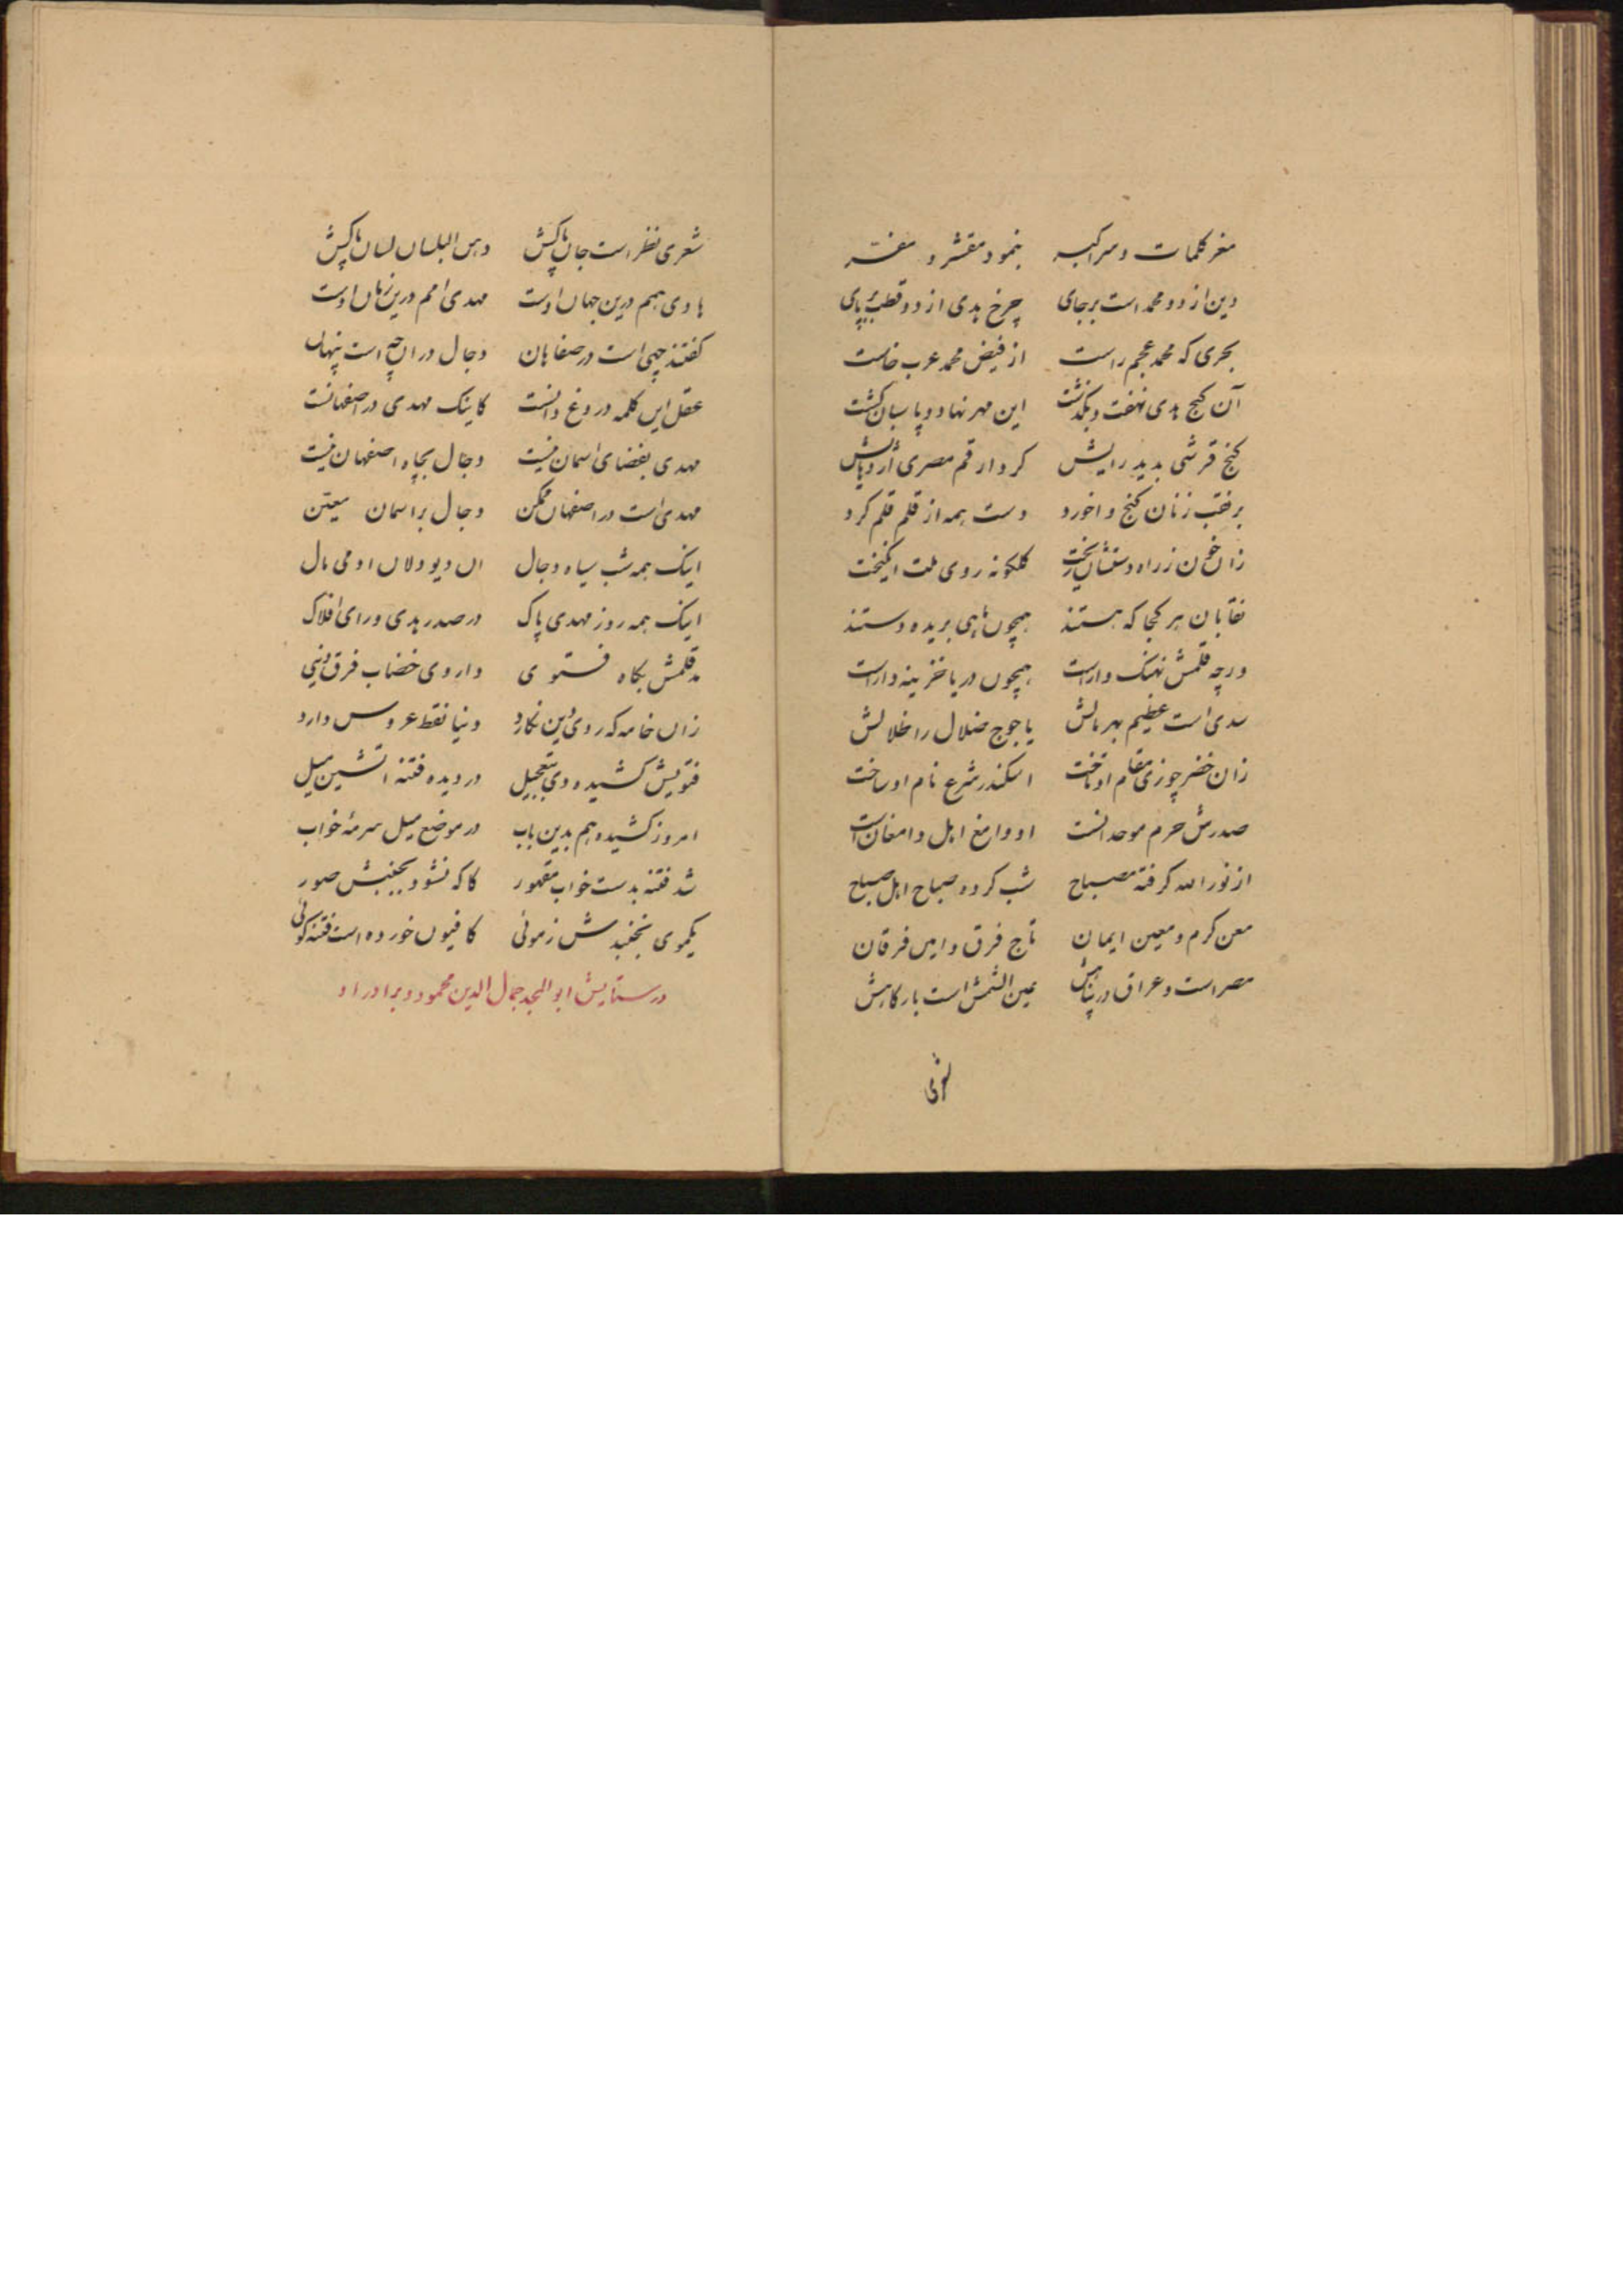 مغز کلمات و سر اکبه بنمود مقشر و مفسر
دین از دو محمد است بر جای چرخ هدی از دو قطب بر پای
بحری که محمد عجم راست از فیض محمد عرب خاست
آن گنج هدی نهفت و بگذشت این مهر نهاد و پاسبان گشت
گنج قرشی بدید رایش کرد از رقم مصری اژدهایش
بر نقب زنان گنج واخورد دست همه از قلم قلم کرد
زان خون ز راه دستشان ریخت گلگونه روی ملت انگیخت
نقابان هر کجا که هستند همچون ماهی بریده دستند
ورچه قلمش نهنگ وار است همچون دریا خزینه دار است
سدی است عظیم بهر مالش یاجوج ضلال را خلالش
زان خضر چو زی مقام او تاخت اسکندر شرع نام او ساخت
صدرش حرم موحدانست او دامغ اهل دامغان است
از نور الله گرفته مصباح شب کرده صباح اهل صباح
معن کرم و معین ایمان تاج فرق و امین فرقان
مصر است و عراق در پناهش عین الشمس است بارگاهش
شعری نظر است جان پاکش دهن البلسان لسان پاکش
هادی همم درین جهان اوست مهدی امم درین زمان اوست
گفتند چهی است در صفاهان دجال در ان چه است پنهان
عقل این کلمه دروغ دانست کاینک مهدی در اصفهانست
مهدی بفضای اسمان نیست دجال بچاه اصفهان نیست
مهدی است در اصفهان ممکن دجال بر اسمان معین
اینک همه شب سیاه دجال ان دیو دلان ادمی مال
اینک همه روز مهدی پاک در صدر هدی ورای افلاک
مد قلمش بگاه فستوی داروی خضاب فرق دنیی
زان خامه که روی دین نگارد دنیا نقط عروس دارد
فتویش کشیده دی بتعجیل در دیده فتنه اتشین میل
امروز کشیده هم بدین باب در موضع میل سرمهٔ خواب
شد فتنه بدست خواب مقهور کاگه نشود بجنبش صور
یکموی نجنبدش ز مونی کافیون خورده است فتنه گوئی
در ستایش ابو المجد جمال الدین محمود و برادر او